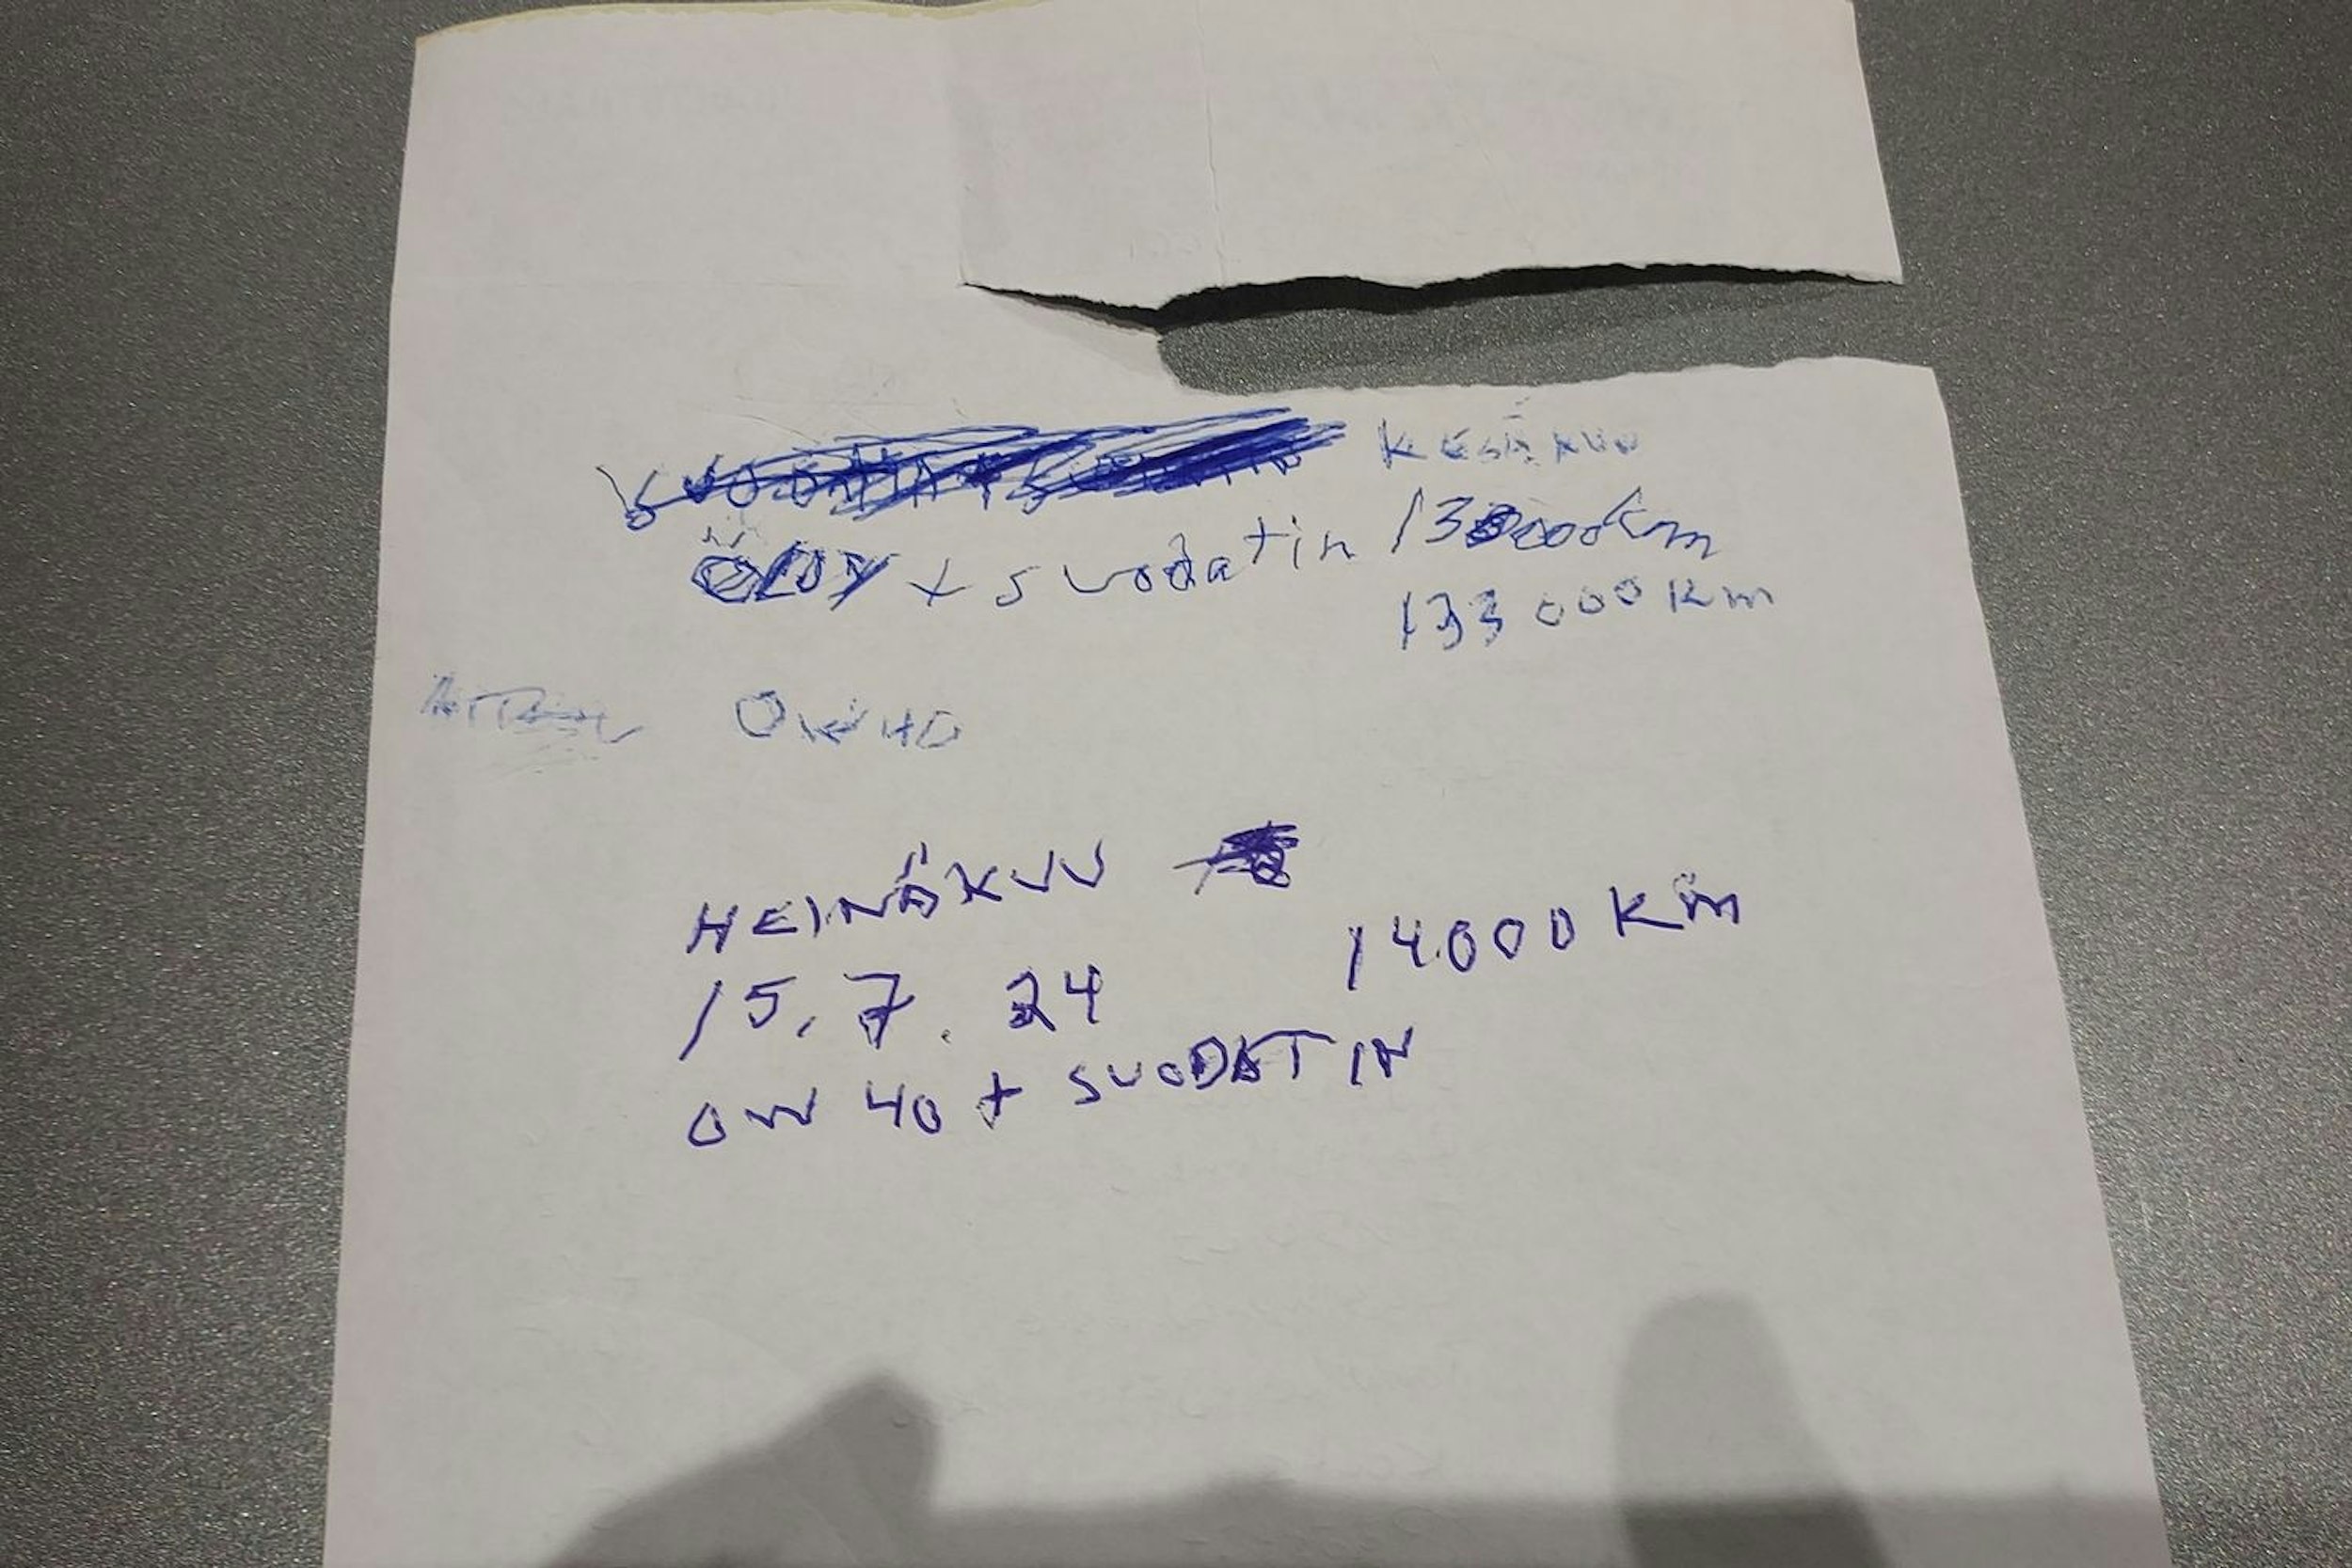 KESÄKUU
ÖLJY + suodatin 133000km
133 000 Km
0W40
HEINÄKUU
15.7.24 14000 Km
0W 40 + SUODATIN